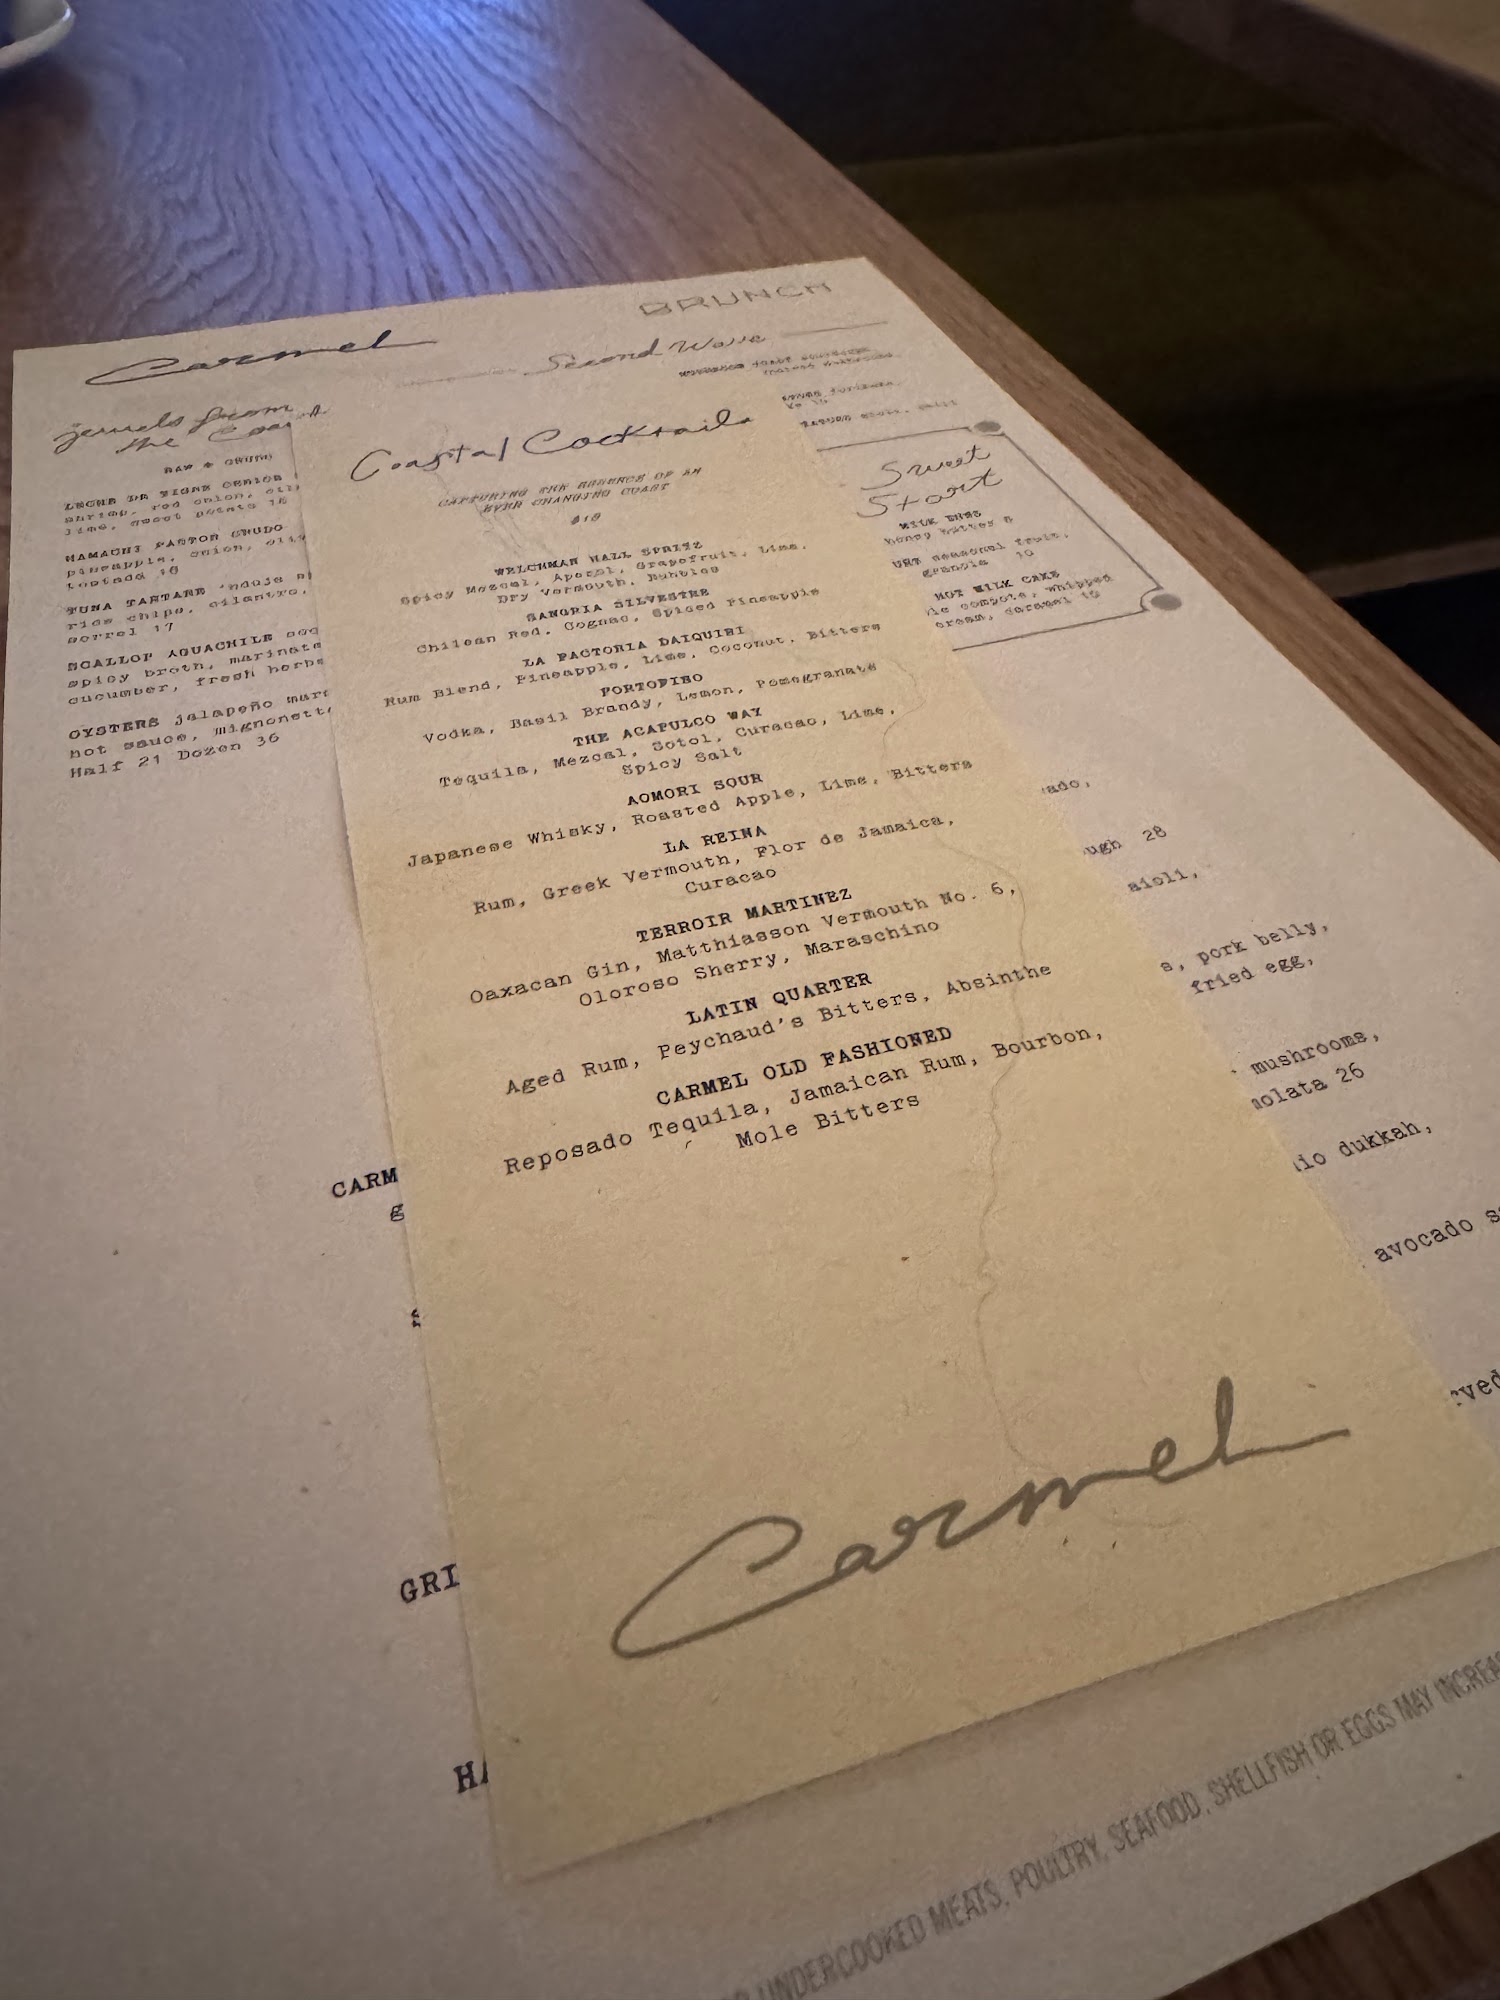 Carmel
BRUNCH
Second Wave
Jewels from
the Coast
RAW & CRUDO
LECHE DE TIGRE CEBICHE
shrimp, red onion,
lime, sweet potato 18
HAMACHI PASTOR CRUDO
pineapple, onion,
tostada 18
TUNA TARTARE 'nduja
rice chips, cilantro,
sorrel 17
SCALLOP AGUACHILE
spicy broth, marinate
cucumber, fresh herbs
OYSTERS jalapeño
hot sauce, mignonette
Half 21 Dozen 36
Coastal Cocktails
CAPTURING THE ESSENCE OF AN
EVER CHANGING COAST
WELCHMAN HALL SPRITZ
Spicy Mezcal, Aperol, Grapefruit, Lime,
Dry Vermouth, Bubbles
SANGRIA SILVESTRE
Chilean Red, Cognac, Spiced Pineapple
LA FACTORIA DAIQUIRI
Rum Blend, Pineapple, Lime, Coconut, Bitters
PORTOFINO
Vodka, Basil Brandy, Lemon, Pomegranate
THE ACAPULCO WAY
Tequila, Mezcal, Sotol, Curacao, Lime,
Spicy Salt
AOMORI SOUR
Japanese Whisky, Roasted Apple, Lime, Bitters
LA REINA
Rum, Greek Vermouth, Flor de Jamaica,
Curacao
TERROIR MARTINEZ
Oaxacan Gin, Matthiasson Vermouth No. 6,
Oloroso Sherry, Maraschino
LATIN QUARTER
Aged Rum, Peychaud's Bitters, Absinthe
CARMEL OLD FASHIONED
Reposado Tequila, Jamaican Rum, Bourbon,
Mole Bitters
Carmel
Sweet
Start
honey butter
seasonal fruit,
granola 10
HOT MILK CAKE
compote, whipped
cream, caramel
ado,
ugh 28
aioli,
s, pork belly,
fried egg,
mushrooms,
molata 26
io dukkah,
avocado
rved
CARM
g
GRI
HA
UNDERCOOKED MEATS, POULTRY, SEAFOOD, SHELLFISH OR EGGS MAY INCREA